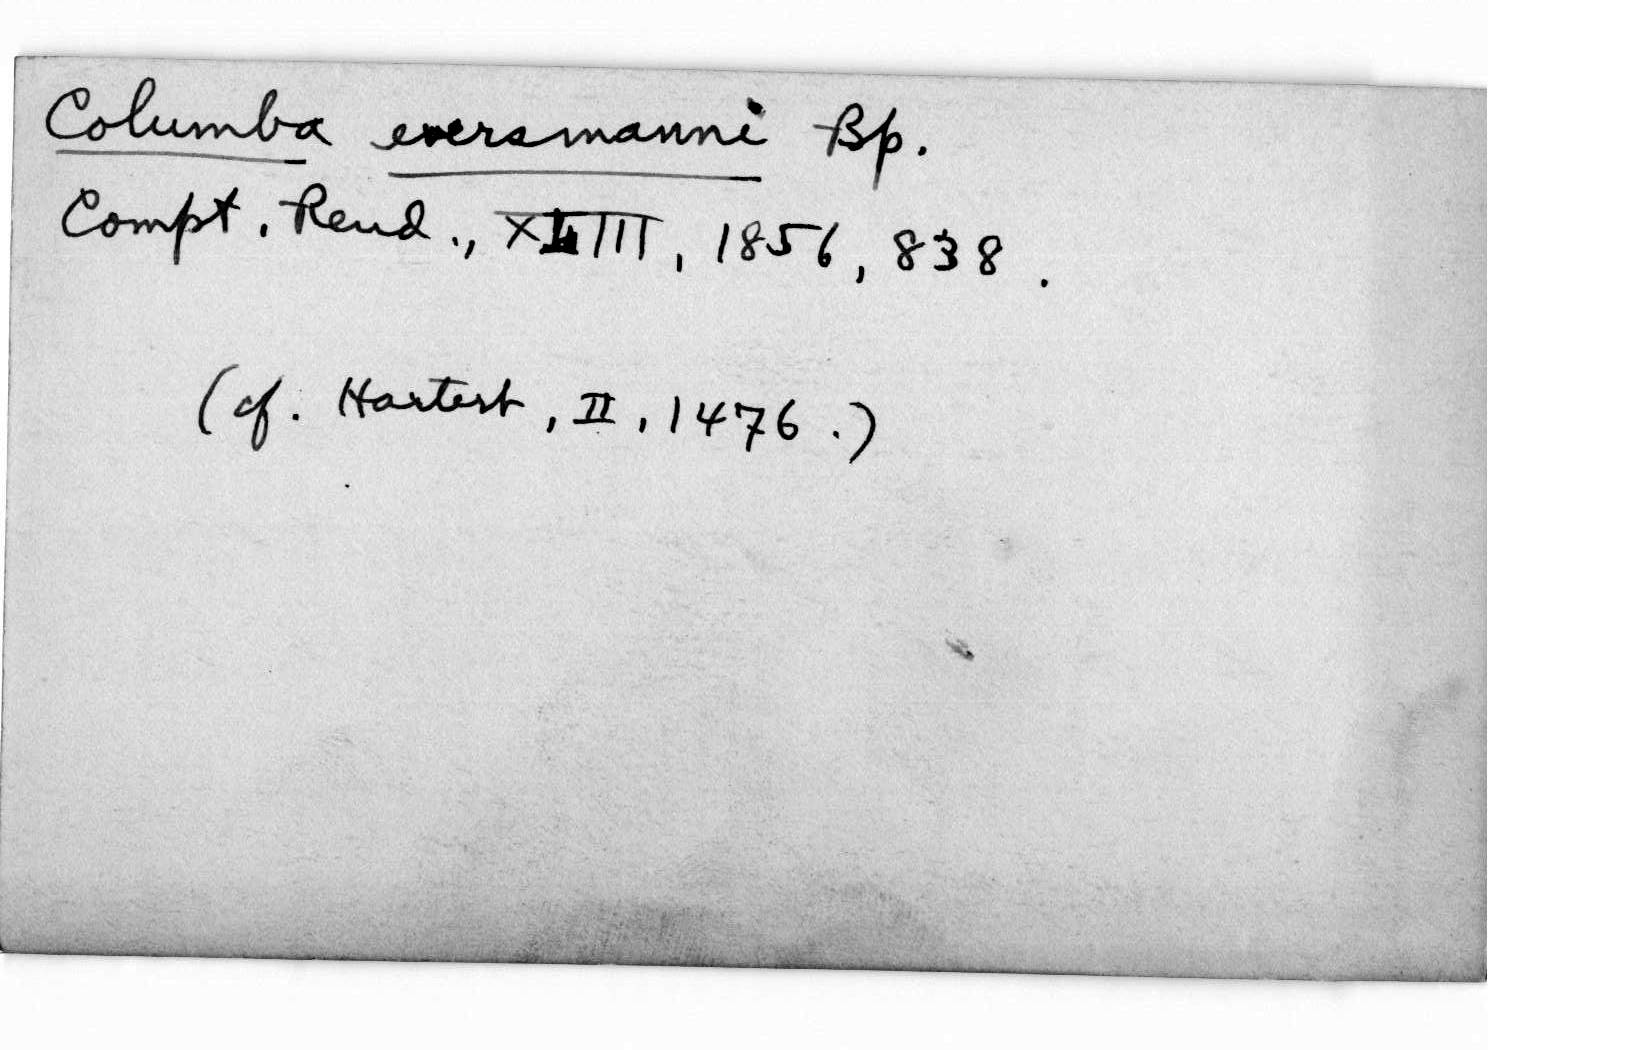 Columba eversmanni Bp.
Compt. Rend., XLIII, 1856, 838.
(cf. Hartert, II, 1476.)